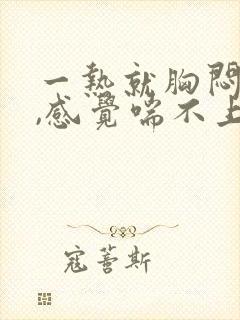 一熱就胸悶
,感覺喘不上
寇薔斯